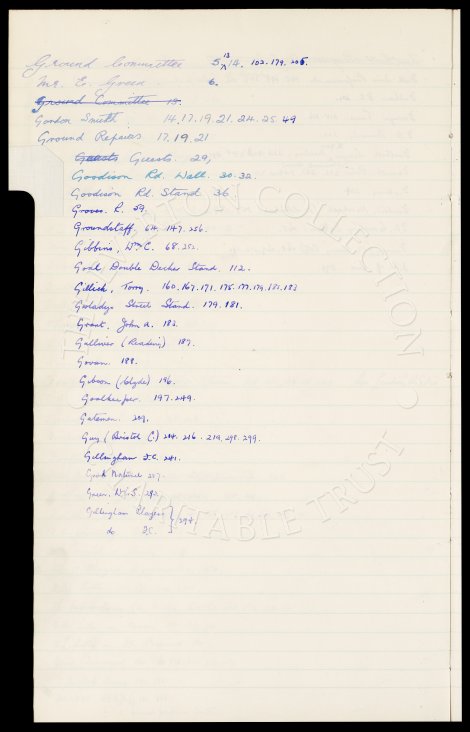 Ground Committee 5, 13 14. 102. 179. 206.
Mr. E. Green. 6.
Ground Committee 13.
Gordon Smith. 14. 17. 19. 21. 24. 25. 49
Ground Repairs 17. 19. 21
Guests Guests. 29,
Goodison Rd. Wall. 30. 32.
Goodison Rd. Stand. 36
Groves. R. 59,
Groundstaff, 64, 147, 256.
Gibbins, Wm C. 68. 252.
Goal Double Decker Stand. 112.
Gillick, Torry. 160. 167. 171. 175. 177. 179. 181. 183
Gwladys Street Stand. 179. 181.
Grant, John A. 182.
Gulliver (Reading) 187.
Govan. 188.
Gibson (Clyde) 196.
Goalkeeper. 197. 249.
Gatemen. 209.
Guy (Bristol C.) 214. 216. 219, 298. 299.
Gillingham F.C. 241.
Grand National 257.
Green. W.S. 292.
Gillingham Players 294
do F.C.
THE EVERTON COLLECTION
CHARITABLE TRUST